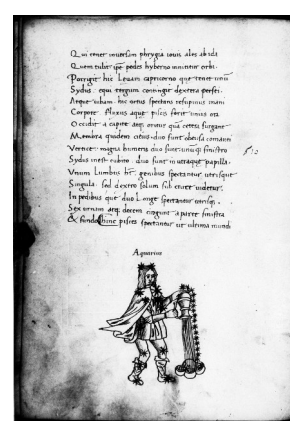 Qui tenet inuersam phrygia iouis ales ab ida
Quem iuba ipē pedes hyberno nititur orbi.
Porrigit hic Leuam capricorno que tenet unū
Sydus. equi tergum contingit dextera persei.
Atque iubam. hic ortus spectans resupinus inani
Corpore flexus aque piscis ferit unius ora
Occidit a capite atq; oritur quā cetera surgant
Membra quidem citius. duo sunt obscura comanti
Vertice. magna humeris duo sunt. unūq; sinistro
Sydus inest cubito. duo sunt in utraque papilla.
Vnum Lumbis genibus spectantur utrisque
Singula. sed dextro solum sub crure uidetur.
In pedibus que duo Longe spectantur utrisq;
Sex unum atq; decem cingunt a parte sinistra
& fundo hinc pisces spectantur ut ultima mundi
Aquarius